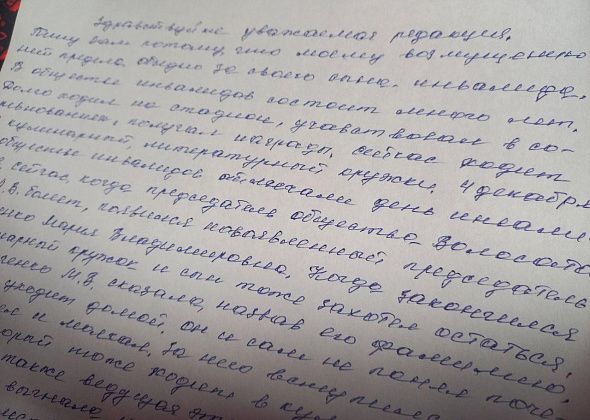 Здравствуйте уважаемая редакция.
Пишу вам потому, что моему возмущению
нет предела обидно за своего сына, инвалида.
В обществе инвалидов состоит много лет.
Долго ходил на стадион, участвовал в со-
ревнованиях, получал награды. Сейчас ходит
в кулинарный, литературный кружки. 4 декабря
обществе инвалидов отмечали день инвали-
сейчас, когда председатель общества Волосато
В.В. болеет, появился новоявленный председатель
енко Мария Владимировна. Когда закончился
нарный кружок и сын тоже захотел остаться,
енко М.В. сказала, назвав его фамилию,
уходит домой, он и сам не понял поче-
и молчал. За него вступилс
орый тоже ходит в кул
также ведущая
выгнала